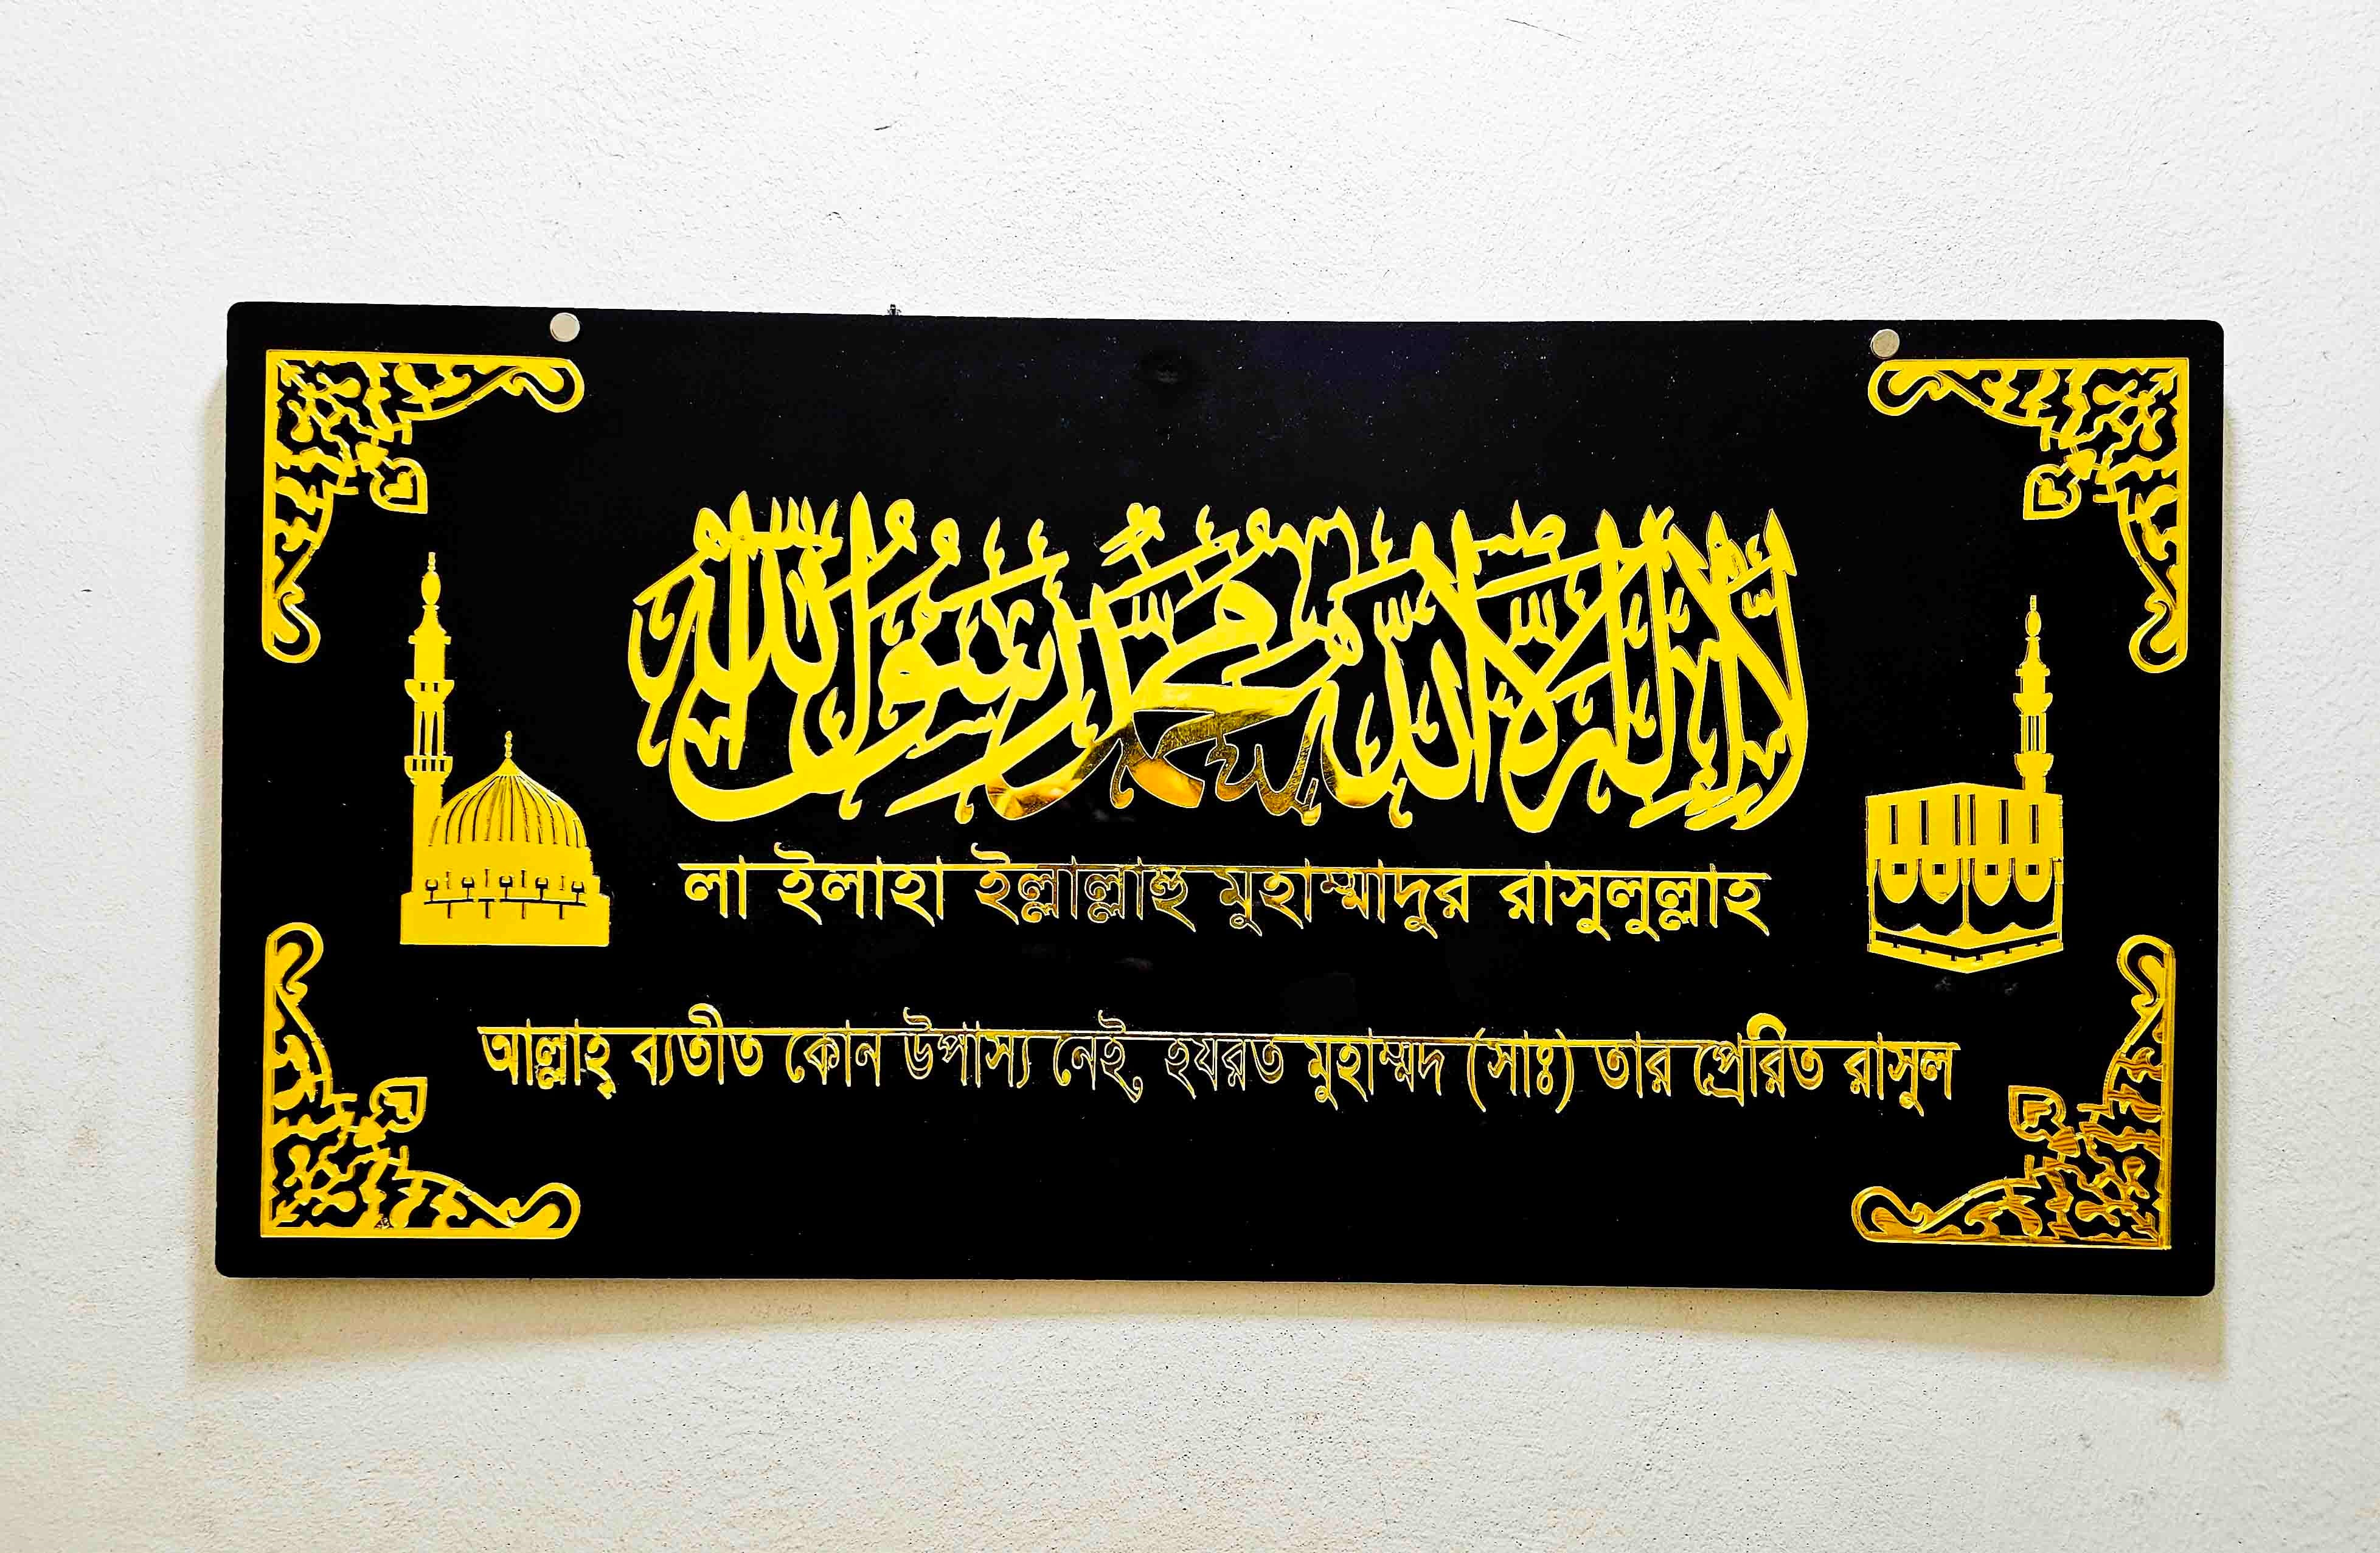 لا إله إلا الله محمد رسول الله
লা ইলাহা ইল্লাল্লাহু মুহাম্মাদুর রাসুলুল্লাহ
আল্লাহ্ ব্যতীত কোন উপাস্য নেই, হযরত মুহাম্মদ (সাঃ) তার প্রেরিত রাসুল